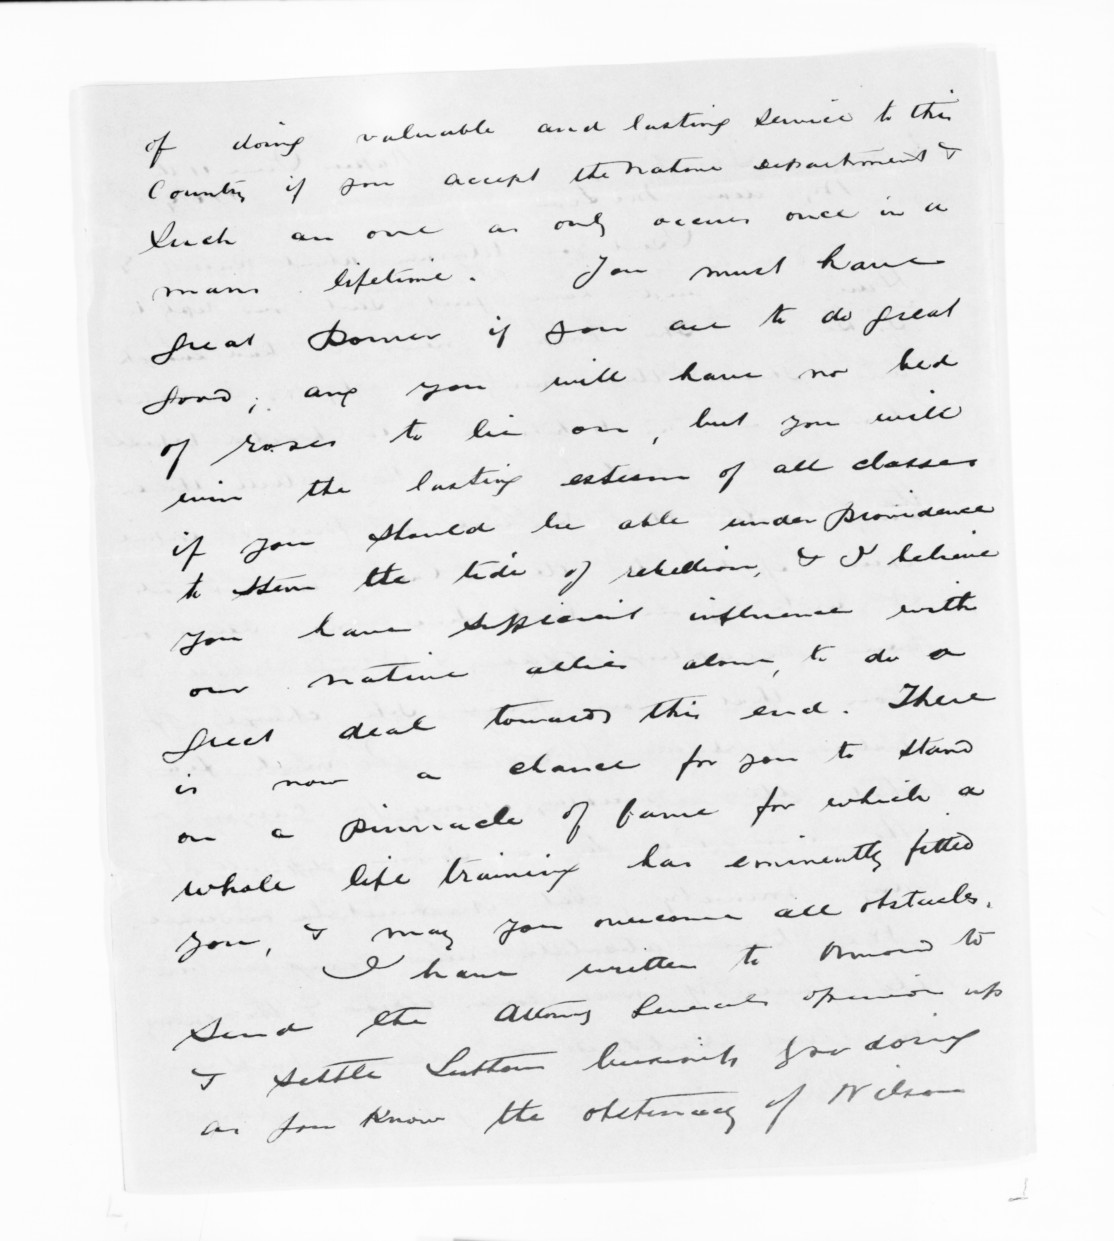 of doing valuable and lasting service to this
Country if you accept the Native Department &
such an one as only occurs once in a
mans lifetime. You must have
great Power if you are to do great
good; any you will have no bed
of roses to lie on, but you will
win the lasting esteem of all classes
if you should be able under providence
to stem the tide of rebellion, & I believe
you have sufficient influence with
our native allies alone, to do a
great deal towards this end. There
is now a chance for you to stand
on a pinnacle of fame for which a
whole life training has eminently fitted
you, & may you overcome all obstacles.
I have written to Ormond to
send the Attorney Generals opinion up
& settle Suttons business
as you know the obstinacy of Wilson